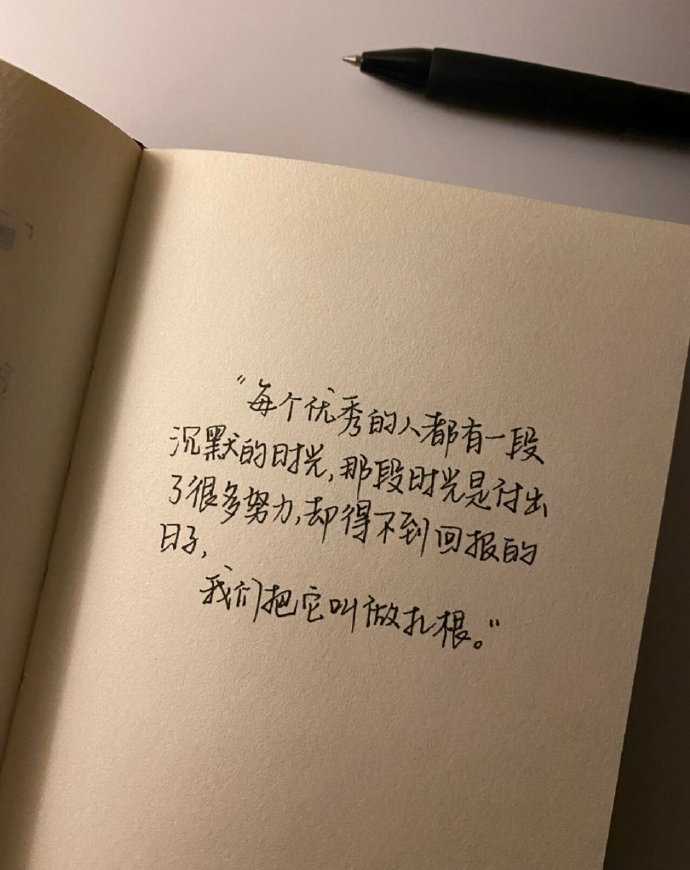 “每个优秀的人都有一段
沉默的时光,那段时光是付出
了很多努力,却得不到回报的
日子,
我们把它叫做扎根。”